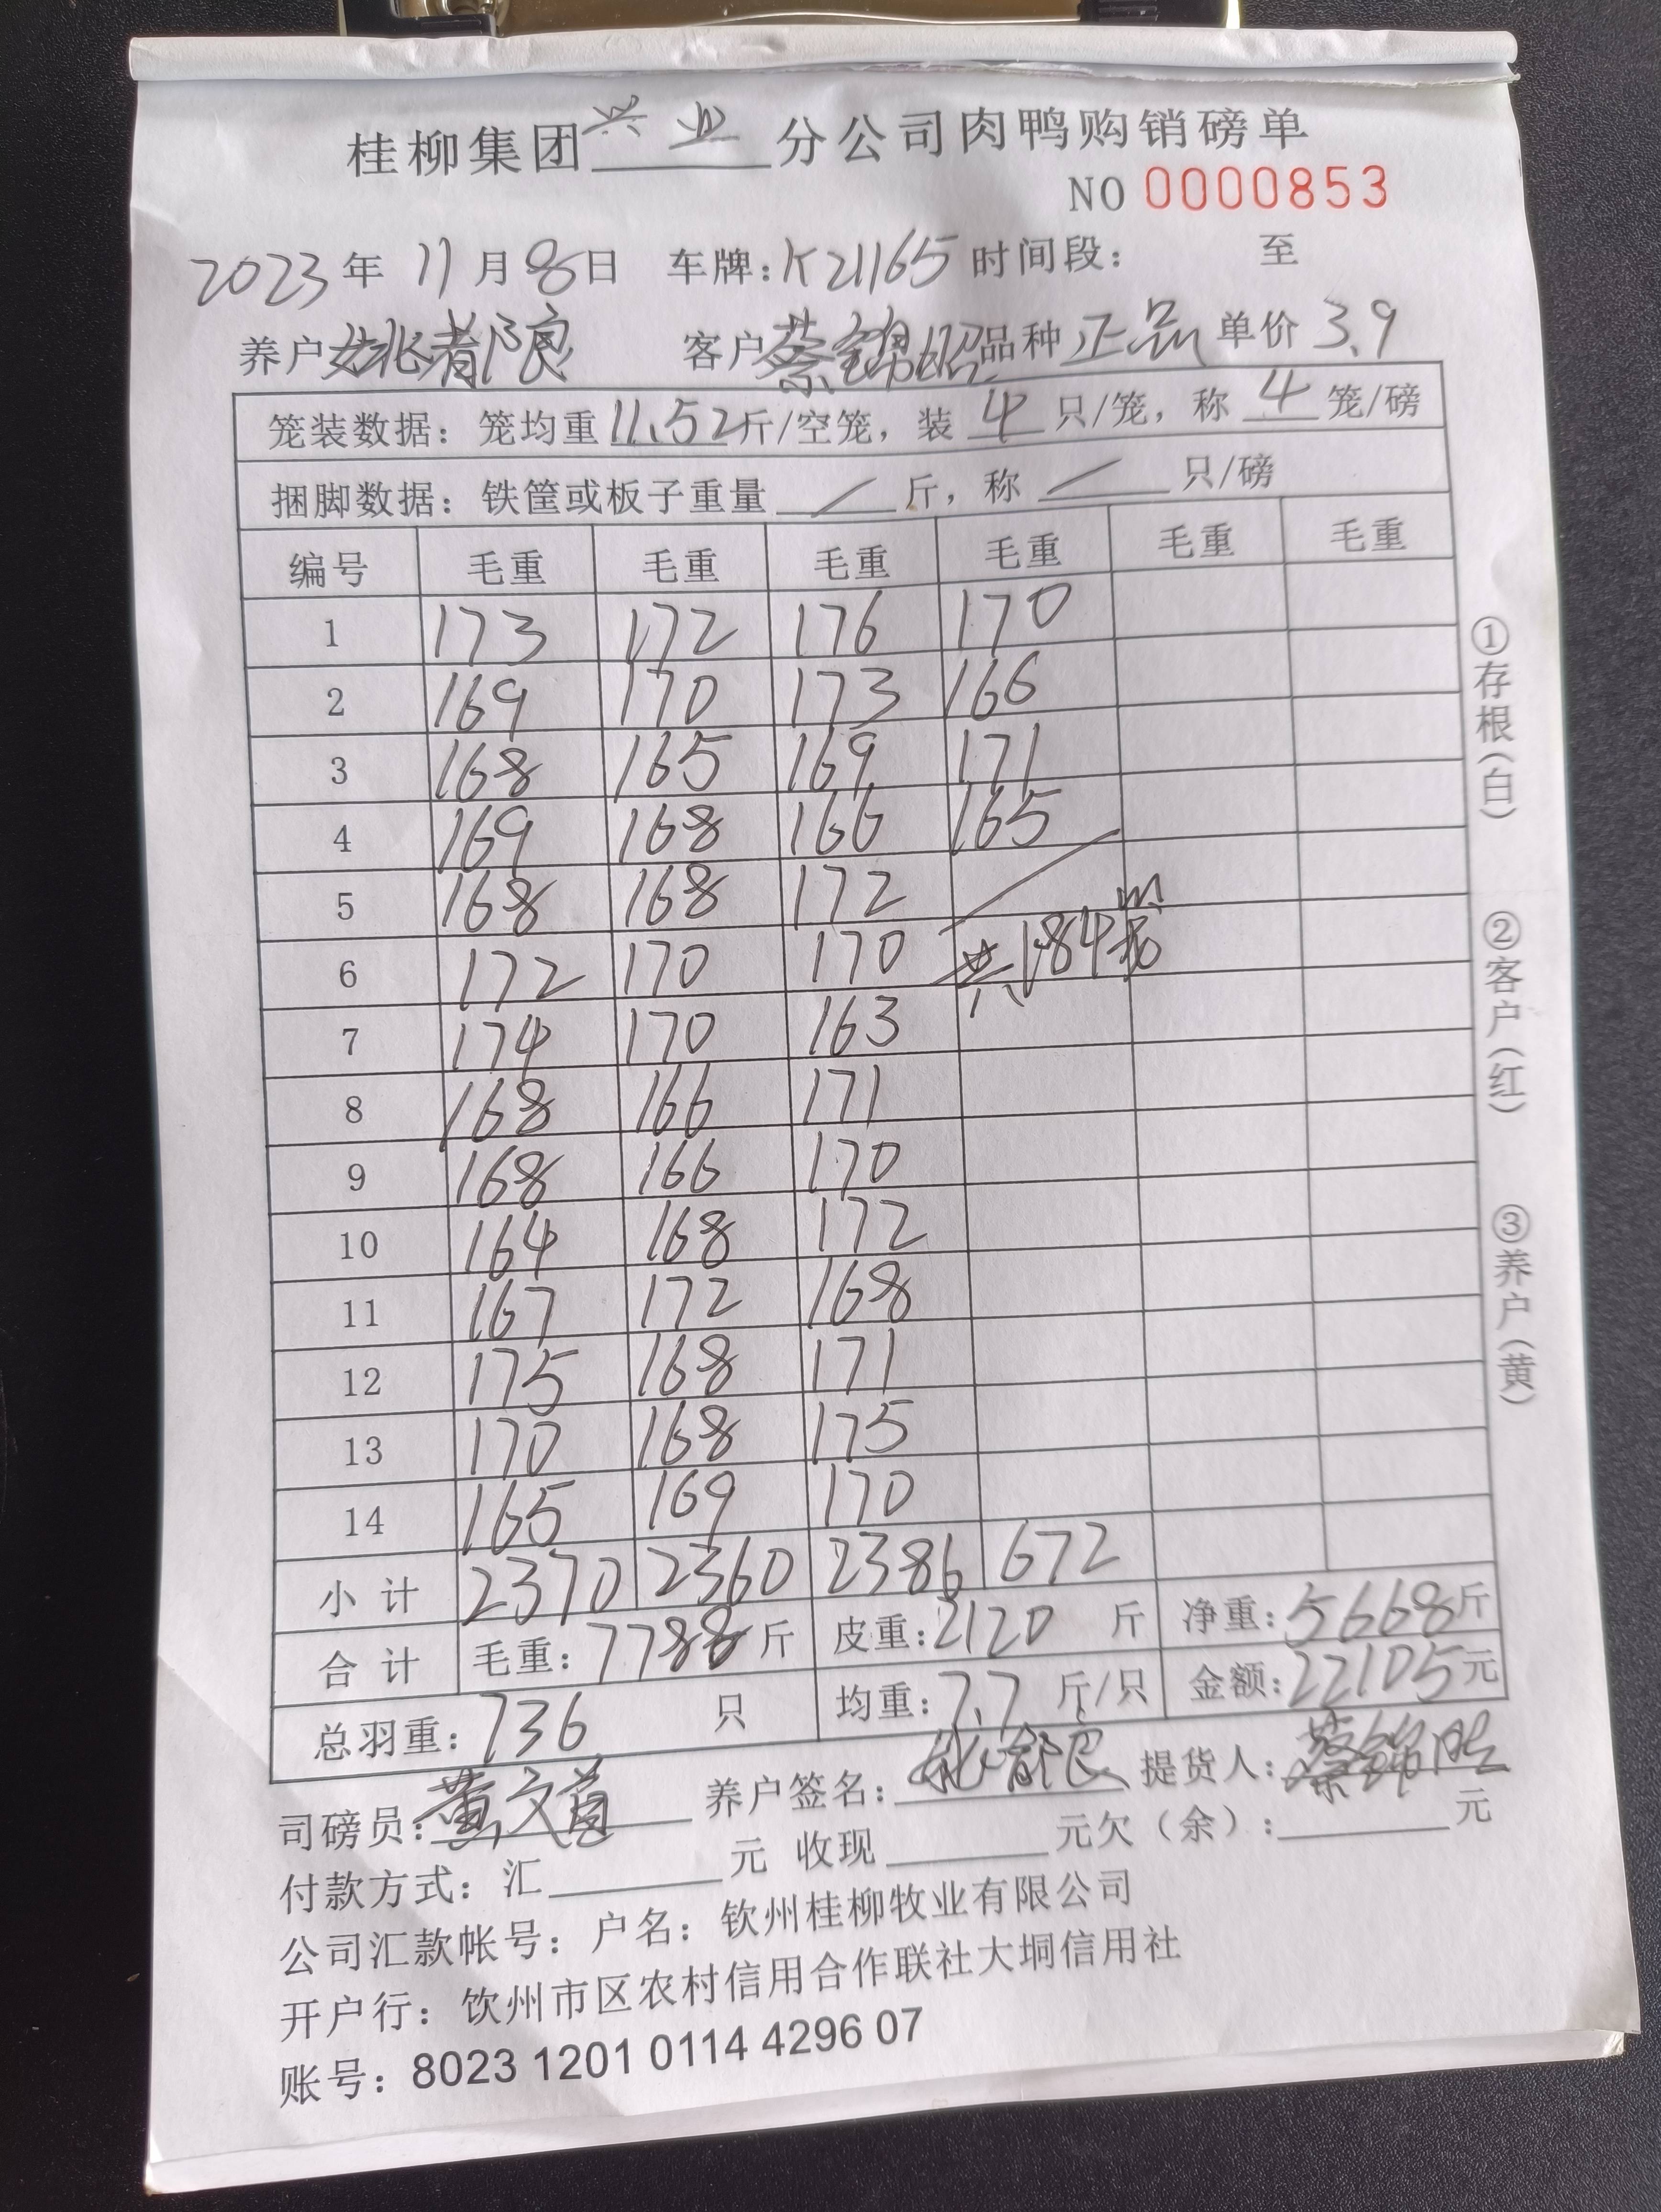 桂柳集团兴业分公司肉鸭购销磅单
NO 0000853
2023年 11月8日 车牌:K21165 时间段: 至
养户 姚 良 客户 蔡锦 品种 正品 单价 3.9
笼装数据: 笼均重 11.52 斤/空笼, 装 4 只/笼, 称 4 笼/磅
捆脚数据: 铁筐或板子重量 / 斤, 称 / 只/磅
编号 毛重 毛重 毛重 毛重 毛重 毛重
1 173 172 176 170
2 169 170 173 166
3 168 165 169 171
4 169 168 166 165
5 168 168 172
6 172 170 170 共184笼
7 174 170 163
8 168 166 171
9 168 166 170
10 164 168 172
11 167 172 168
12 175 168 171
13 170 168 175
14 165 169 170
小计 2370 2360 2386 672
合计 毛重: 7788 斤 皮重: 2120 斤 净重: 5668斤
总羽重: 736 只 均重: 7.7 斤/只 金额: 22105元
司磅员: 黄文 养户签名: 提货人: 蔡锦
付款方式: 汇 元 收现 元欠(余): 元
公司汇款帐号: 户名: 钦州桂柳牧业有限公司
开户行: 饮州市区农村信用合作联社大垌信用社
账号: 8023 1201 0114 4296 07
①存根(白)
②客户(红)
③养户(黄)